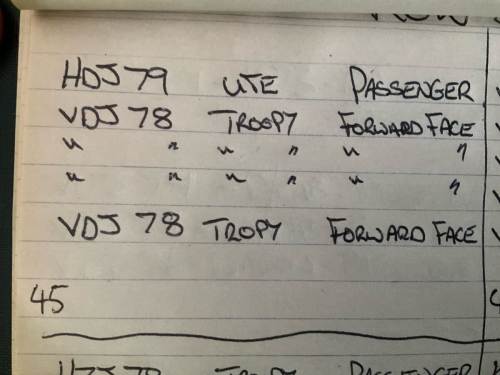 HDJ 79 UTE PASSENGER
VDJ 78 TROOPY FORWARD FACE
" " " " " "
" " " " " "
VDJ 78 TROPY FORWARD FACE
45